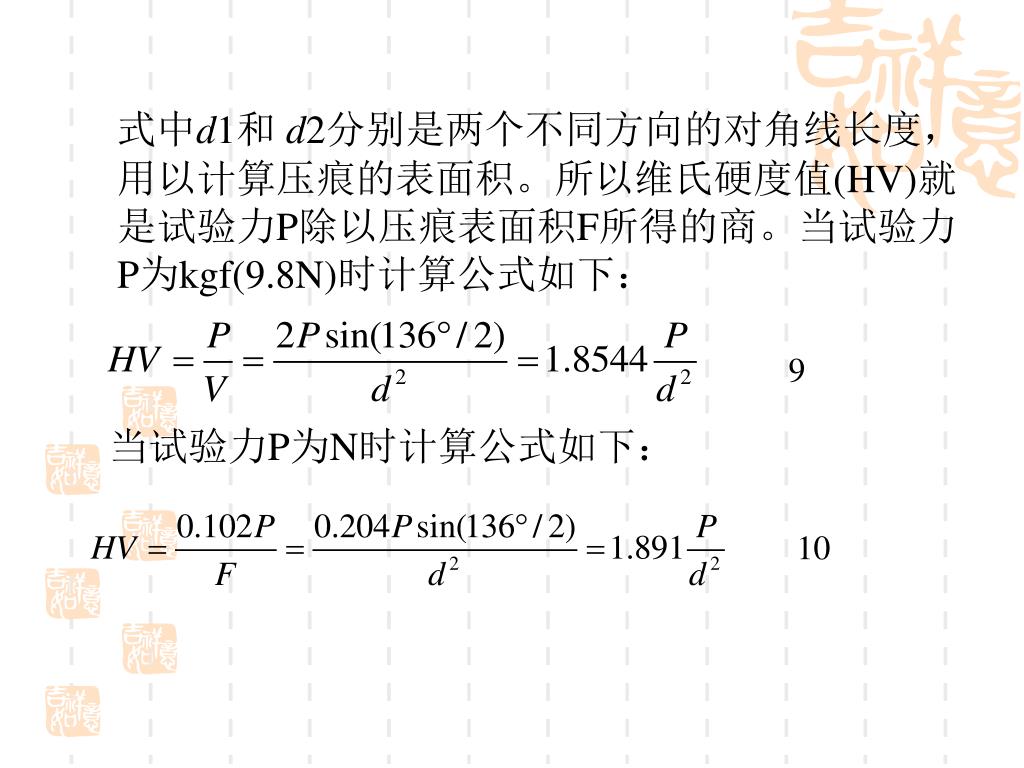 式中d1和 d2分别是两个不同方向的对角线长度，
用以计算压痕的表面积。所以维氏硬度值(HV)就
是试验力P除以压痕表面积F所得的商。当试验力
P为kgf(9.8N)时计算公式如下：
HV = P/V = 2P sin(136°/2)/d² = 1.8544 P/d² 9
当试验力P为N时计算公式如下：
HV = 0.102P/F = 0.204P sin(136°/2)/d² = 1.891 P/d² 10
吉祥如意
吉祥如意
吉祥如意
吉祥如意
吉祥如意
吉祥如意
吉祥如意